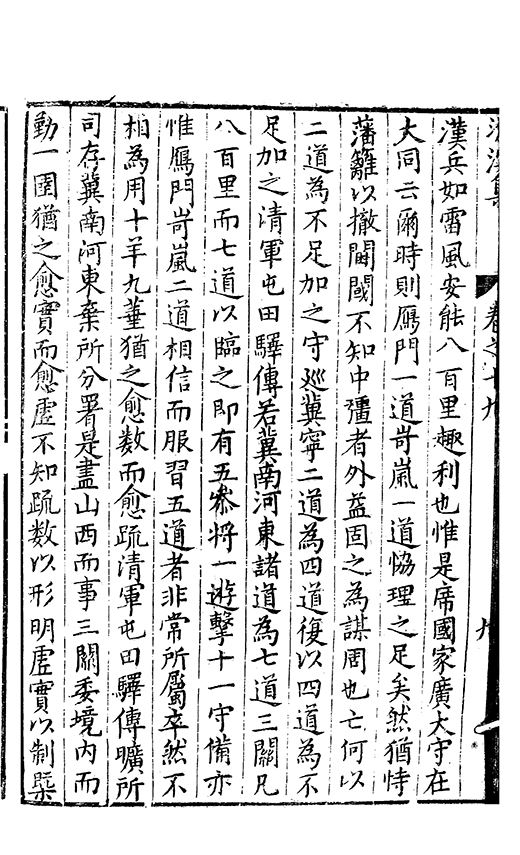 卷之十九
九
漢兵如雷風安能八百里趣利也惟是席國家廣大守在
大同云爾時則鴈門一道岢嵐一道恊理之足矣然猶恃
藩籬以撤閫閾不知中彊者外益固之為謀周也亡何以
二道為不足加之守廵冀寧二道為四道復以四道為不
足加之清軍屯田驛傳若冀南河東諸道為七道三關凡
八百里而七道以臨之即有五叅將一遊擊十一守備亦
惟鴈門岢嵐二道相信而服習五道者非常所屬卒然不
相為用十羊九䔲猶之愈數而愈疏清軍屯田驛傳曠所
司存冀南河東棄所分署是盡山西而事三關委境內而
勤一圉猶之愈實而愈虛不知疏數以形明虛實以制槩